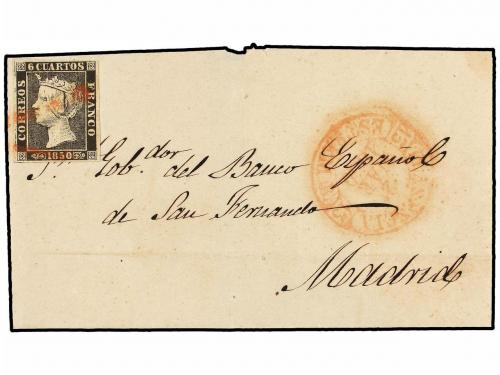 6 CUARTOS
CORREOS
FRANCO
1850
Sr. Gob.dor del Banco Español
de San Fernando
Madrid